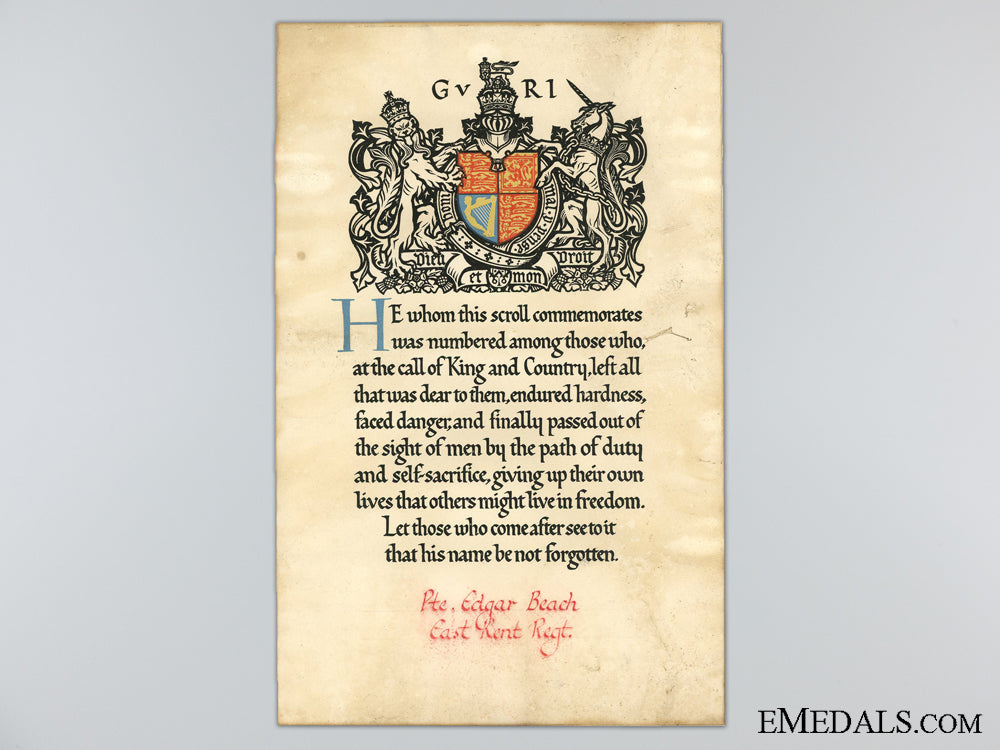 G V R I
Honi soit qui mal y pense
Dieu et mon Droit
HE whom this scroll commemorates
was numbered among those who,
at the call of King and Country, left all
that was dear to them, endured hardness,
faced danger, and finally passed out of
the sight of men by the path of duty
and self-sacrifice, giving up their own
lives that others might live in freedom.
Let those who come after see to it
that his name be not forgotten.
Pte. Edgar Beach
East Kent Regt.
EMEDALS.COM